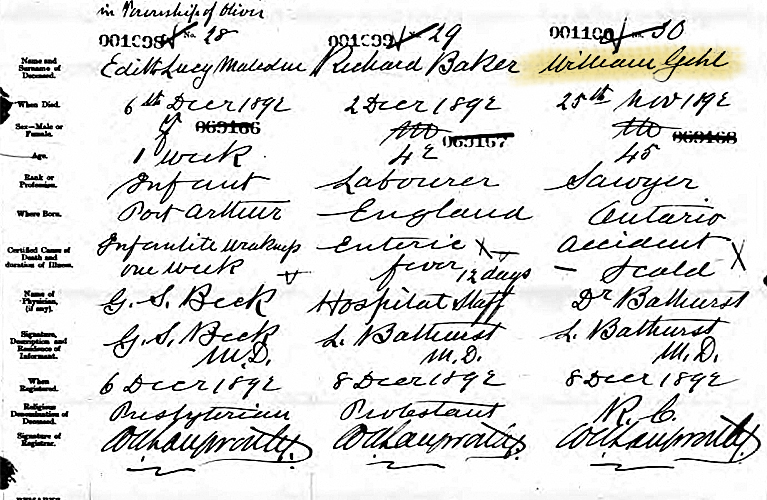 in Township of Oliver
001098 No. 28 001099 No. 29 001100 No. 30
Name and Surname of Deceased. Edith Lucy Richard Baker William Gehl
When Died. 6th Decr 1892 2 Decr 1892 25th Nov 1892
Sex—Male or Female. f 069166 M 069167 M 069168
Age. 1 week 42 45
Rank or Profession. Infant Labourer Sawyer
Where Born. Port Arthur England Ontario
Certified Cause of Death and duration of Illness. Infantile Enteric Accident
one week fever, 12 days – Scald
Name of Physician, (if any). G. S. Beck Hospital Staff Dr Bathurst
Signature, Description and Residence of Informant. G. S. Beck L. Bathurst L. Bathurst
M.D. M.D. M.D.
When Registered. 6 Decr 1892 8 Decr 1892 8 Decr 1892
Religious Denomination of Deceased. Presbyterian Protestant R. C.
Signature of Registrar.
REMARKS